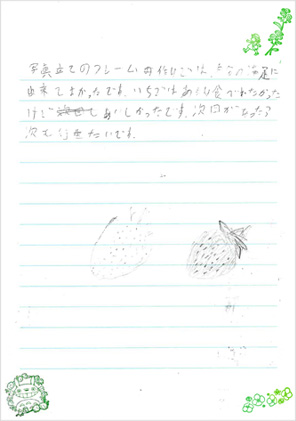 写真立てのフレームの作りについは、その満足に
出来てよかったです。いちごはあくも食べれなかった
けど おいしかったです。次回があったら
次も行きたいです。